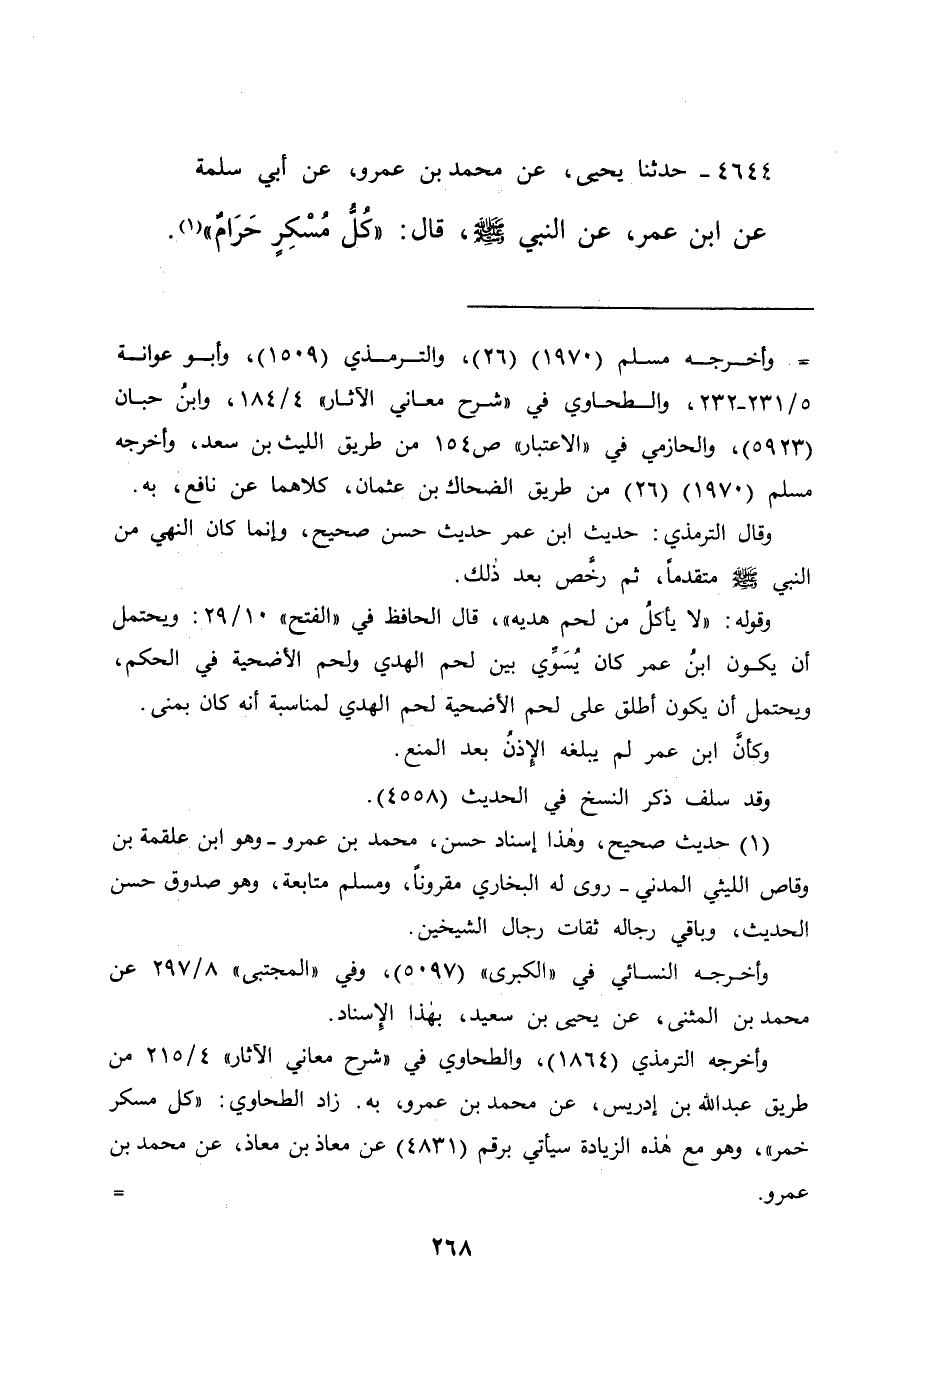 ٤٦٤٤ ـ حدثنا يحيى، عن محمد بن عمرو، عن أبي سلمة
عن ابن عمر، عن النبي ﷺ، قال: «كُلُّ مُسْكِرٍ حَرَامٌ»(١).
= وأخرجه مسلم (١٩٧٠) (٢٦)، والترمذي (١٥٠٩)، وأبو عوانة
٢٣١/٥-٢٣٢، والطحاوي في «شرح معاني الآثار» ١٨٤/٤، وابنُ حبان
(٥٩٢٣)، والحازمي في «الاعتبار» ص١٥٤ من طريق الليث بن سعد، وأخرجه
مسلم (١٩٧٠) (٢٦) من طريق الضحاك بن عثمان، كلاهما عن نافع، به.
وقال الترمذي: حديث ابن عمر حديث حسن صحيح، وإنما كان النهي من
النبي ﷺ متقدماً، ثم رخَّص بعد ذٰلك.
وقوله: «لا يأكلُ من لحم هديه»، قال الحافظ في «الفتح» ٢٩/١٠: ويحتمل
أن يكون ابنُ عمر كان يُسَوِّي بين لحم الهدي ولحم الأضحية في الحكم،
ويحتمل أن يكون أطلق على لحم الأضحية لحم الهدي لمناسبة أنه كان بمنى.
وكأنَّ ابن عمر لم يبلغه الإذنُ بعد المنع.
وقد سلف ذكر النسخ في الحديث (٤٥٥٨).
(١) حديث صحيح، وهٰذا إسناد حسن، محمد بن عمرو ـ وهو ابن علقمة بن
وقاص الليثي المدني ـ روى له البخاري مقروناً، ومسلم متابعة، وهو صدوق حسن
الحديث، وباقي رجاله ثقات رجال الشيخين.
وأخرجه النسائي في «الكبرى» (٥٠٩٧)، وفي «المجتبى» ٢٩٧/٨ عن
محمد بن المثنى، عن يحيى بن سعيد، بهٰذا الإسناد.
وأخرجه الترمذي (١٨٦٤)، والطحاوي في «شرح معاني الآثار» ٢١٥/٤ من
طريق عبدالله بن إدريس، عن محمد بن عمرو، به. زاد الطحاوي: «كل مسكر
خمر»، وهو مع هٰذه الزيادة سيأتي برقم (٤٨٣١) عن معاذ بن معاذ، عن محمد بن
عمرو. =
٢٦٨